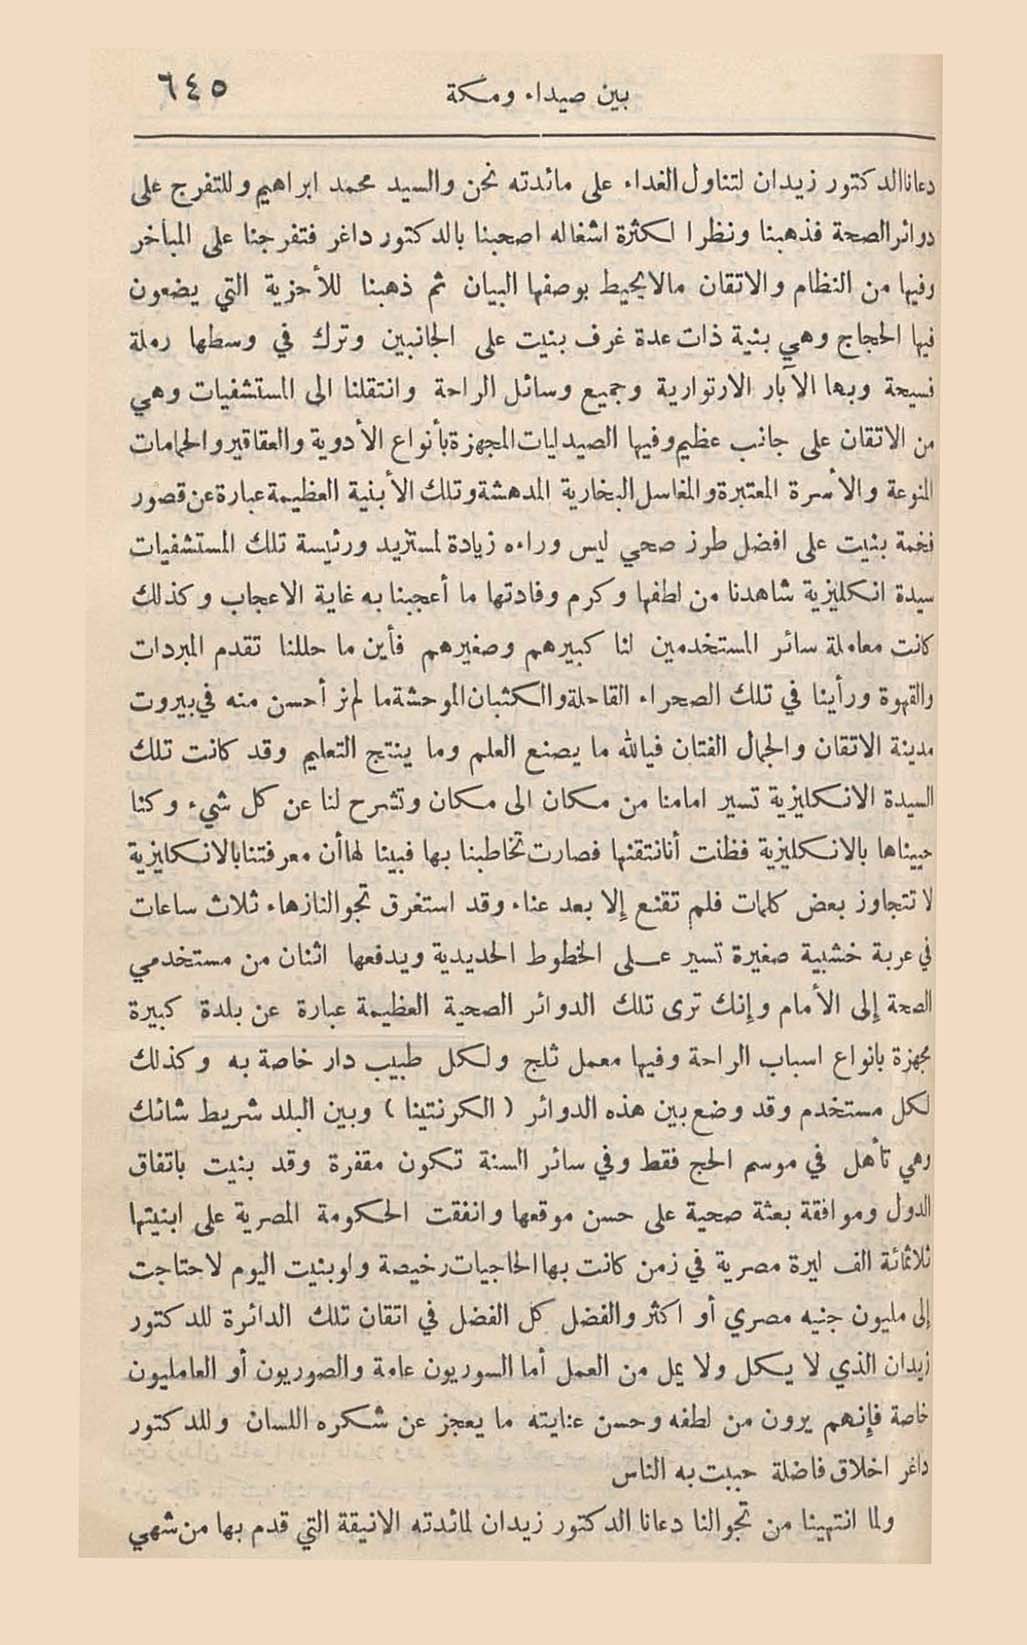 بين صيداء ومكة ٦٤٥
دعانا الدكتور زيدان لتناول الغداء على مائدته نحن والسيد محمد ابراهيم وللتفرج على
دوائر الصحة فذهبنا ونظرا لكثرة اشغاله اصحبنا بالدكتور داغر فتفرجنا على المباخر
وفيها من النظام والاتقان مالا يحيط بوصفها البيان ثم ذهبنا للأحزية التي يضعون
فيها الحجاج وهي بنية ذات عدة غرف بنيت على الجانبين وترك في وسطها رملة
فسيحة وبها الآبار الارتوارية وجميع وسائل الراحة وانتقلنا الى المستشفيات وهي
من الاتقان على جانب عظيم وفيها الصيدليات المجهزة بأنواع الأدوية والعقاقير والحمامات
المنوعة والأسرة المعتبرة والمغاسل البخارية المدهشة وتلك الأبنية العظيمة عبارة عن قصور
فخمة بنيت على افضل طرز صحي ليس وراءه زيادة لمستزيد ورئيسة تلك المستشفيات
سيدة انكليزية شاهدنا من لطفها وكرم وفادتها ما أعجبنا به غاية الاعجاب وكذلك
كانت معاملة سائر المستخدمين لنا كبيرهم وصغيرهم فأين ما حللنا تقدم المبردات
والقهوة ورأينا في تلك الصحراء القاحلة والكثبان الموحشة ما لم نر أحسن منه في بيروت
مدينة الاتقان والجمال الفتان فيالله ما يصنع العلم وما ينتج التعليم وقد كانت تلك
السيدة الانكليزية تسير امامنا من مكان الى مكان وتشرح لنا عن كل شيء وكنا
حييناها بالانكليزية فظنت أنا نتقنها فصارت تخاطبنا بها فبينا لها أن معرفتنا بالانكليزية
لا تتجاوز بعض كلمات فلم تقنع إلا بعد عناء وقد استغرق تجوالنا زهاء ثلاث ساعات
في عربة خشبية صغيرة تسير على الخطوط الحديدية ويدفعها اثنان من مستخدمي
الصحة إلى الأمام وإنك ترى تلك الدوائر الصحية العظيمة عبارة عن بلدة كبيرة
مجهزة بانواع اسباب الراحة وفيها معمل ثلج ولكل طبيب دار خاصة به وكذلك
لكل مستخدم وقد وضع بين هذه الدوائر ( الكرنتينا ) وبين البلد شريط شائك
وهي تأهل في موسم الحج فقط وفي سائر السنة تكون مقفرة وقد بنيت باتفاق
الدول وموافقة بعثة صحية على حسن موقعها وانفقت الحكومة المصرية على ابنيتها
ثلاثمائة الف ليرة مصرية في زمن كانت بها الحاجيات رخيصة ولو بنيت اليوم لاحتاجت
إلى مليون جنيه مصري أو اكثر والفضل كل الفضل في اتقان تلك الدائرة للدكتور
زيدان الذي لا يكل ولا يمل من العمل أما السوريون عامة والصوريون أو العامليون
خاصة فإنهم يرون من لطفه وحسن عنايته ما يعجز عن شكره اللسان وللدكتور
داغر اخلاق فاضلة حببت به الناس
ولما انتهينا من تجوالنا دعانا الدكتور زيدان لمائدته الانيقة التي قدم بها من شهي